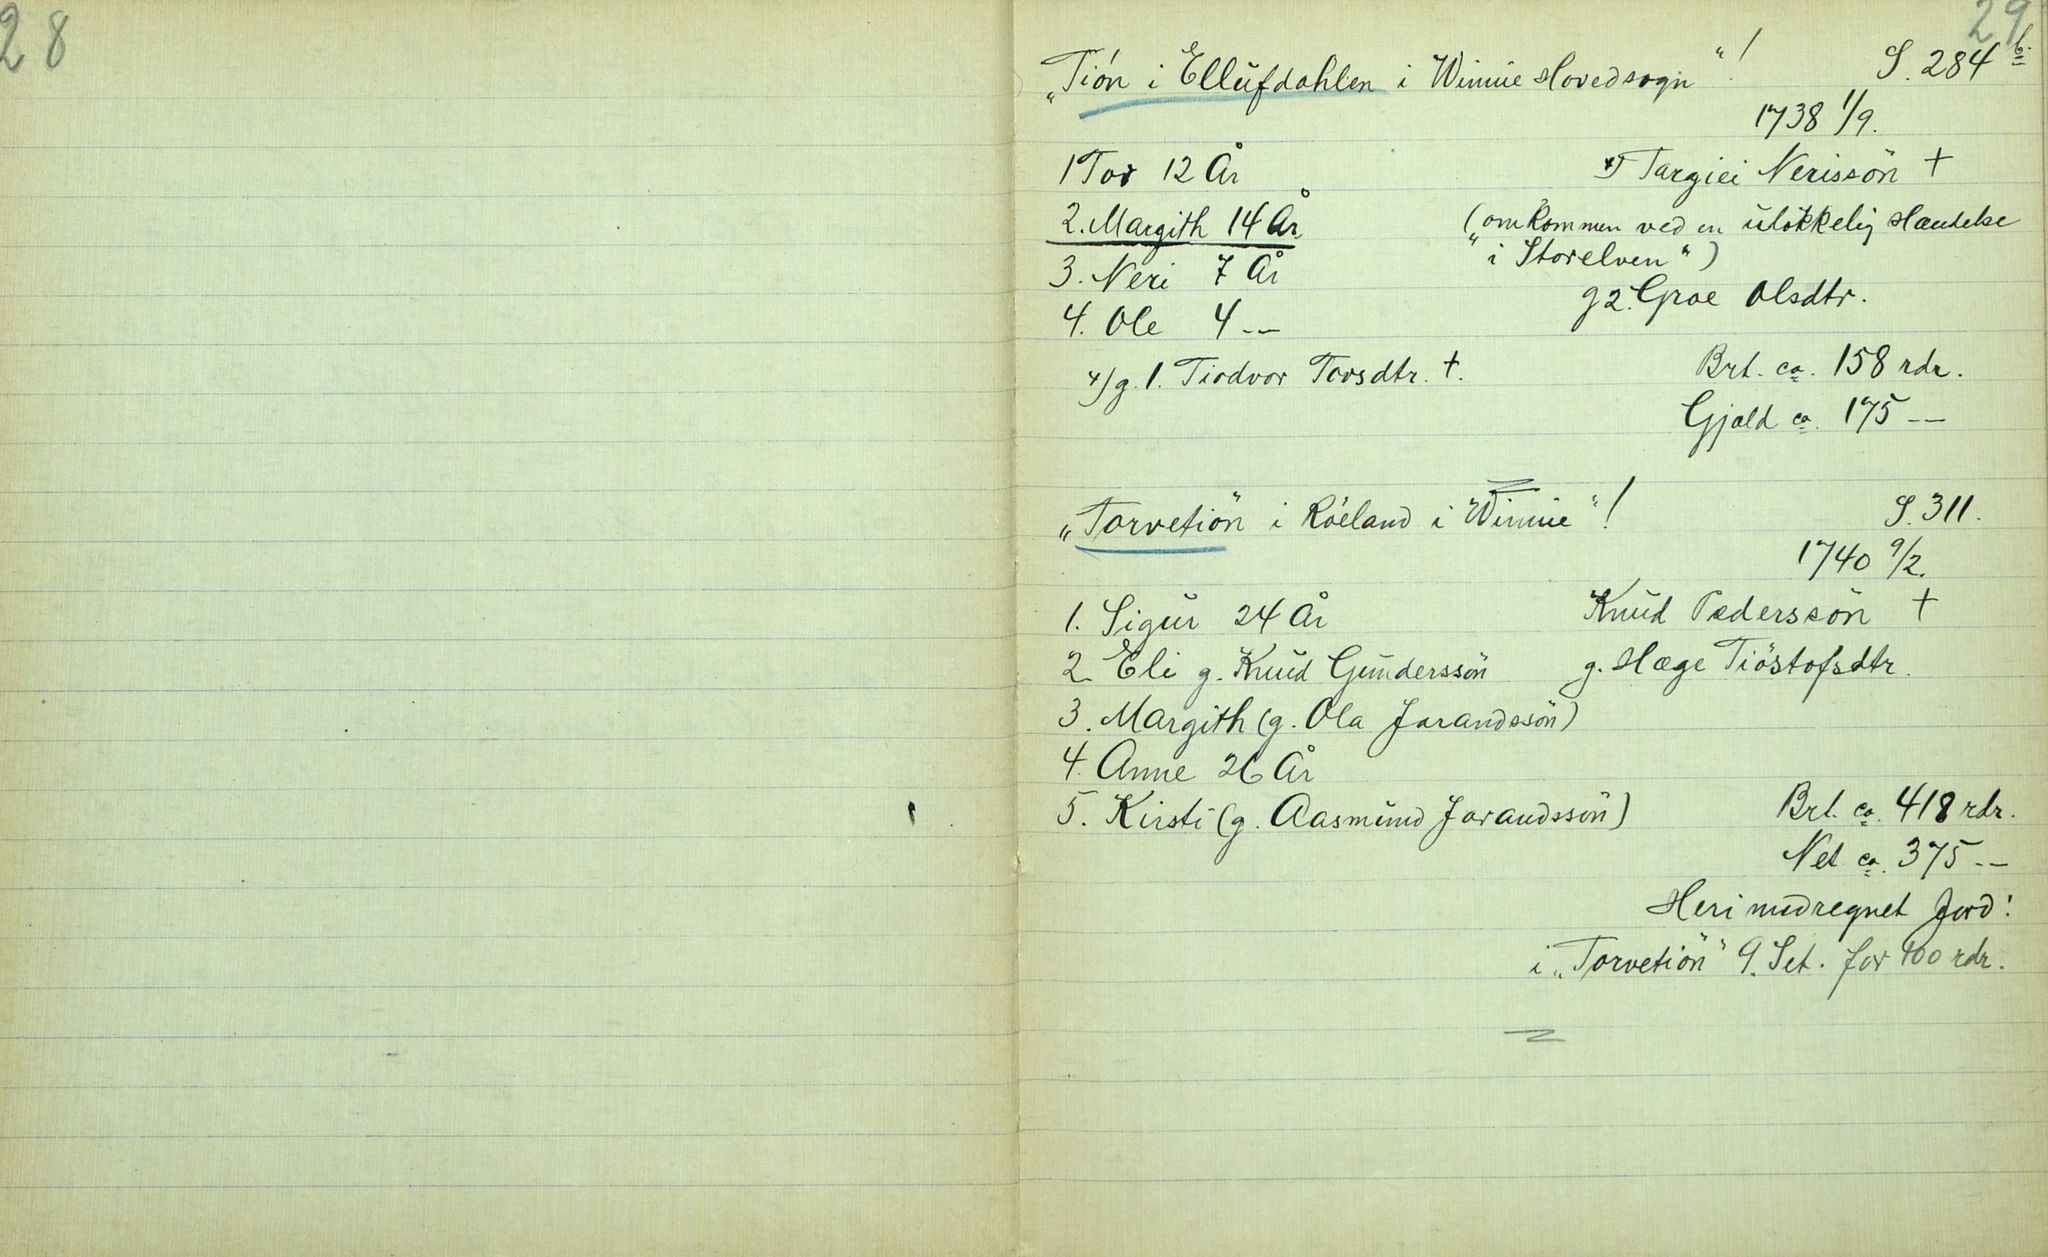 28
29
„Tión i Ellufdahlen i Winnie Hovedsogn“! S. 284 b.
1738 1/9.
1 Tov 12 År x) Targiei Nerissön †
2. Margith 14 År („omkommen ved en ulökkelig Hændelse
3. Neri 7 År „i Storelven“)
4. Ole 4 -- g 2. Groe Olsdtr.
x) g. 1. Tiodvor Tovsdtr. †. Brt. ca. 158 rdr.
Gjæld ca. 175 --
„Torvetiön i Röeland i Winnie“! S. 311.
1740 9/2.
1. Sigur 24 År Knud Pederssön †
2. Eli g. Knud Gunderssön g. Hæge Tiöstofsdtr.
3. Margith (g. Ola Jorandssön)
4. Anne 26 År
5. Kirsti (g. Aasmund Jorandssön) Brt. ca. 418 rdr.
Net ca. 375 --
Heri medregnet Jord:
i „Torvetiön“ 9. Set. for 400 rdr.